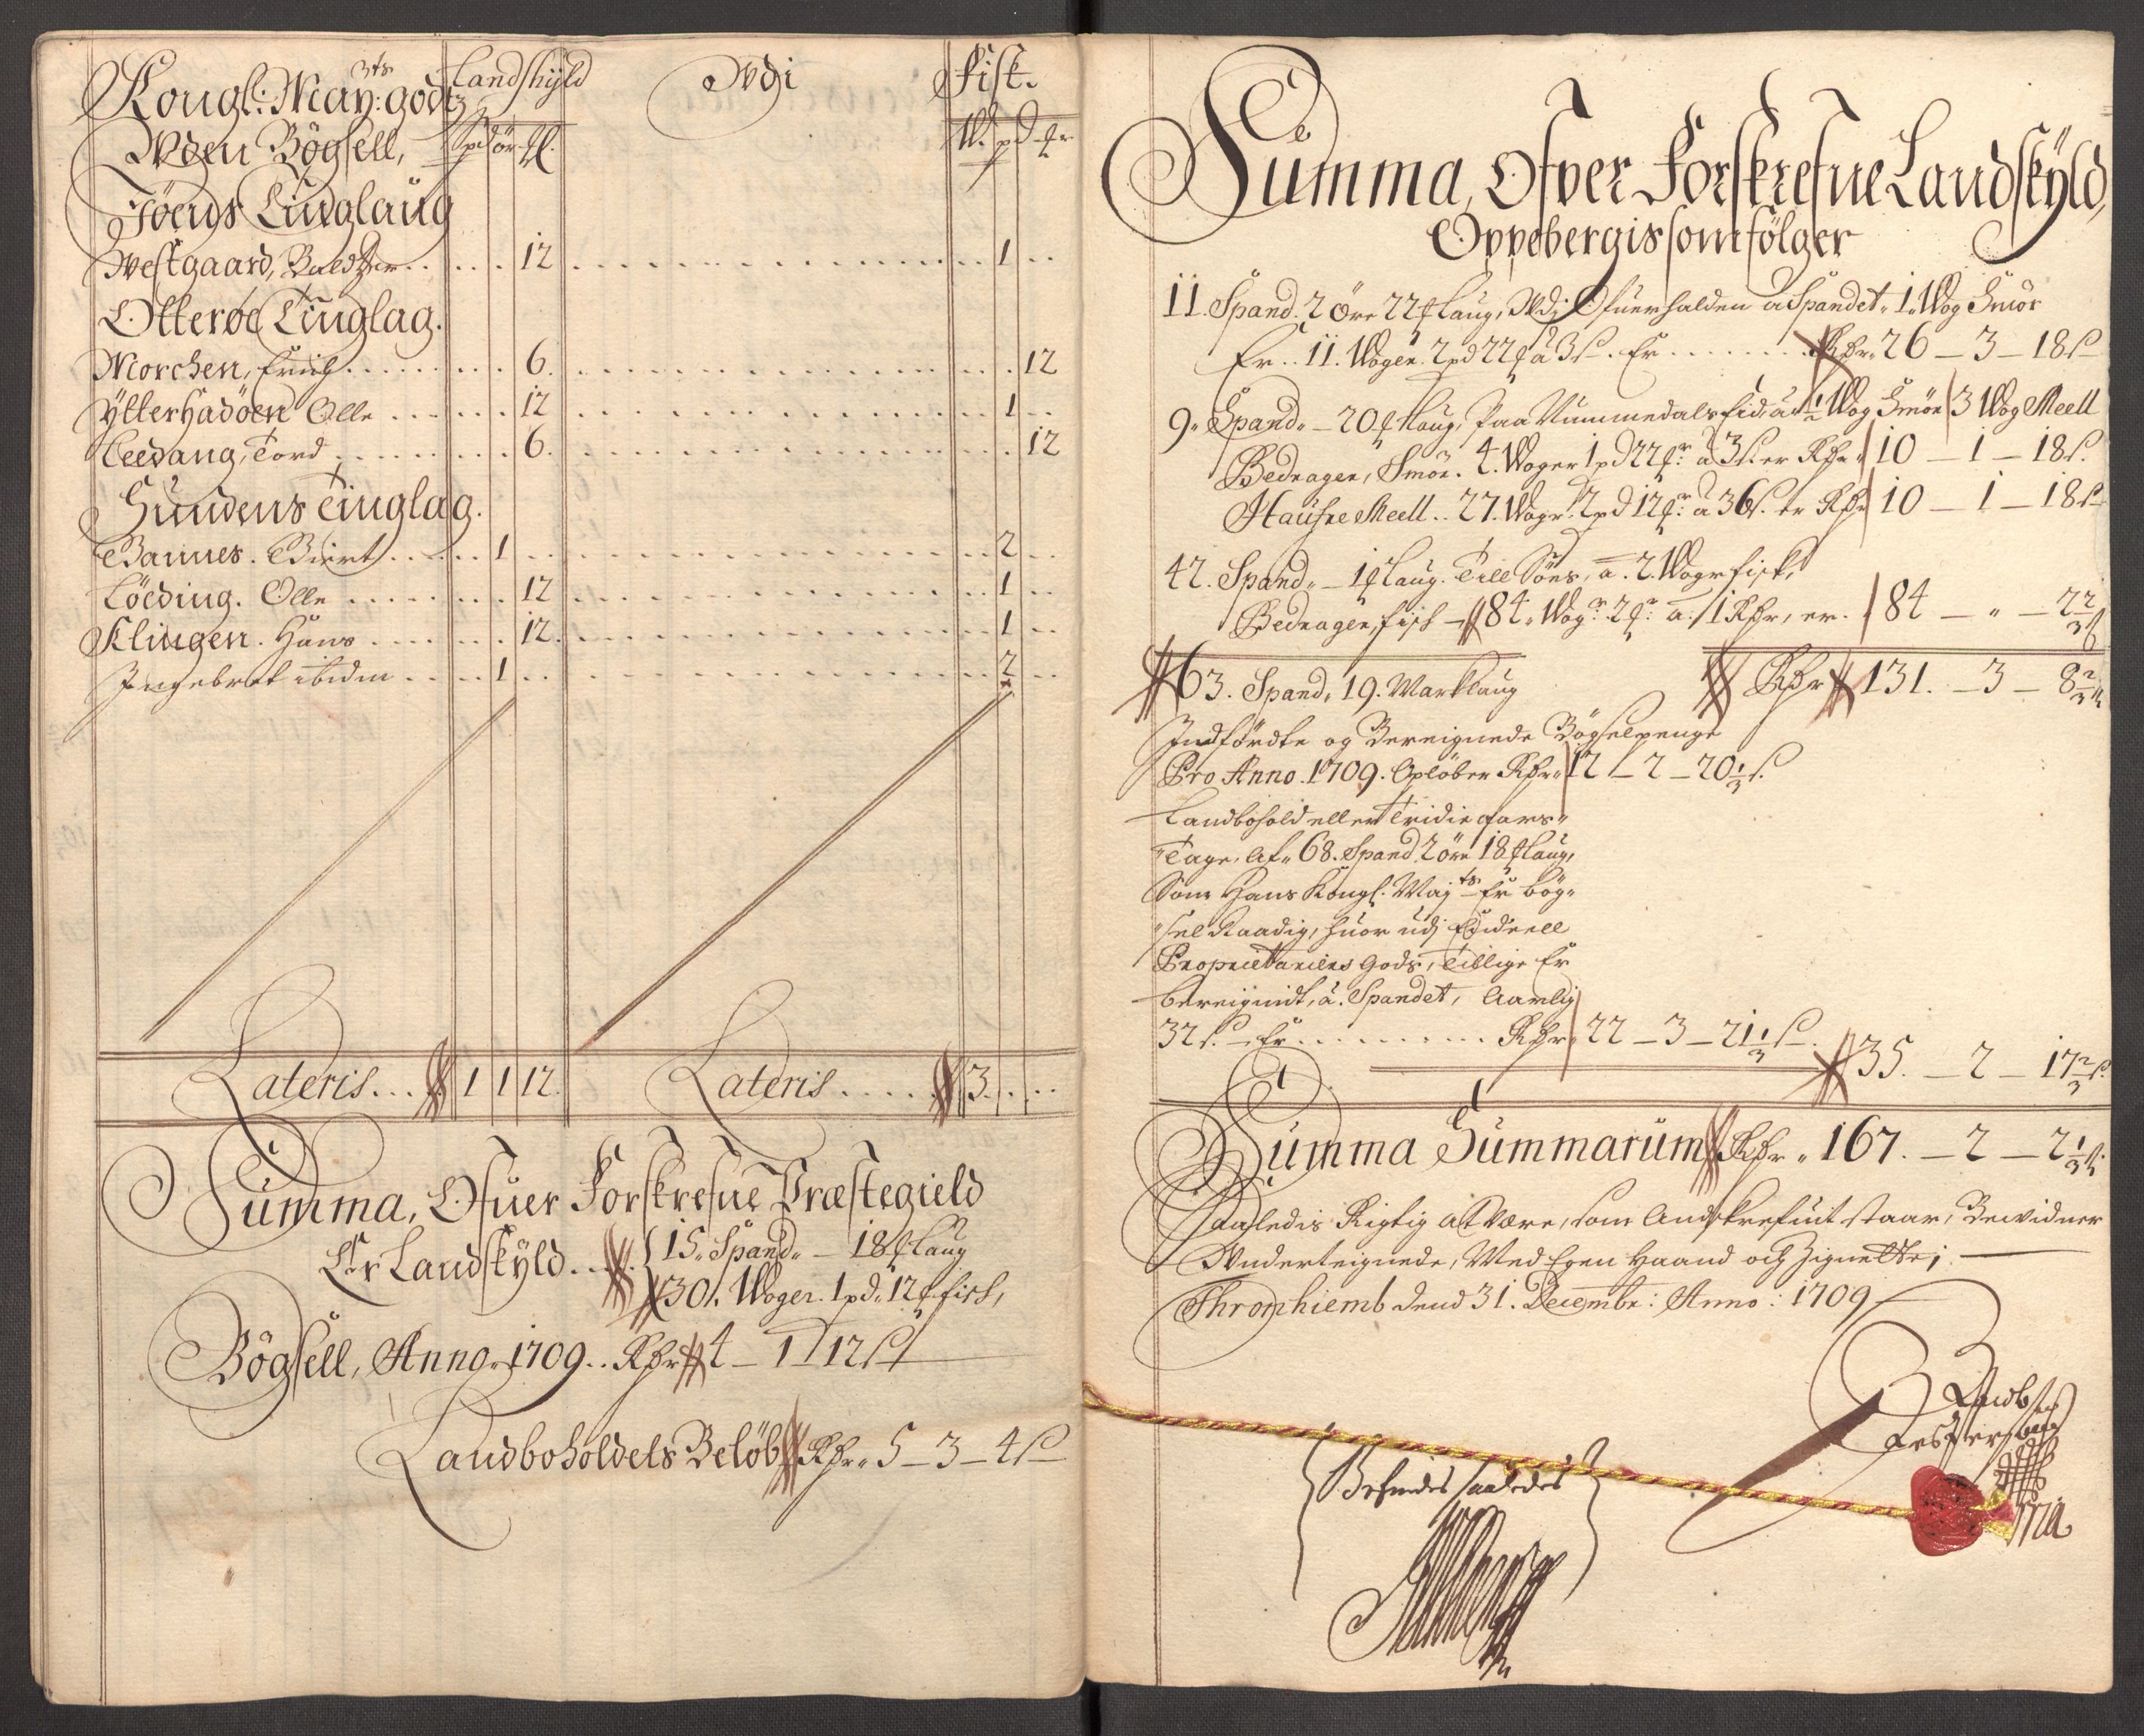 Kongl: May:ts godtz
Landskyld
Wdi
Fisk.
Uden Bögsell,
Spd ör ₰.
W. pd ₰r
Fiöens Tinglaug
Westgaard, Baldtzer . . . . . 12 . . . . . 1 . .
Otterøe Tinglag.
Morchen, Erich . . . . . 6. . . . . . 12
Ytterhadöen Olle . . . . . 12 . . . . . 1 . .
Leedang, Tord . . . . . 6. . . . . . 12
Hundens Tinglag.
Bannes. Biert . . . . . 1 . . . . . 2 . .
Löeding. Olle . . . . . 12 . . . . . 1 . .
Klingen. Hans . . . . . 12. . . . . . 1 . .
Ingebret ibidm . . . . . 1 . . . . . 2 . .
Lateris . . . 1 1 12. Lateris . . . . . 3. . .
Summa, Ofuer Forskrefne Præstegield
Er Landskyld . . . 15. Spand. – 18 ₰ Laug
30. Woger. 1 pd. 12 ₰ fisk,
Bögsell, Anno. 1709. . Rdr 4 – 1 – 12 s
Landboholdets Belöb Rdr. 5 – 3 – 4 s
Summa, Ofver Forskrefne Landskyld,
Oppebergis som fölger
11. Spand. 2 öre 22 ₰ Laug, Wdj Ofuerhalden a Spandet. 1. Wog Smör
Er . . 11. Woger. 2 pd 22 ₰ a 3 s. Er . . . . . Rdr. 26 – 3 – 18 s
9. Spand. – 20 ₰ Laug, Paa Nummedals sid: a 1/2 Wog Smör 3 Wog Meell
Bedragen, Smör. 4. Woger 1 pd 22 ₰r: a 3 s. er Rdr. 10 – 1 – 18 s.
Haufre Meell . . 27. Wogr. 2 pd 12 ₰r: a 36 s. er Rdr 10 – 1 – 18 s
42. Spand. – 1 ₰ Laug. Till Söes, a. 2. Wogr fisk,
Bedragen, fisk – 84. Wogr: 2 ₰r: a. 1 Rdr, er. 84 – „ – 2 2/3 s
63. Spand. 19. Marklaug Rdr 131. – 3 – 8 2/3 s
Indförte og Bereignede Bögselpenge
Pro Anno. 1709. Oplöber Rdr. 12 – 2 – 20 1/3 s.
Landbohold eller Tridie aars-
Tage, Af. 68. Spand 2 öre 18 ₰ Laug,
Som Hans Kongl. Mayts Er bög-
sel Raadig, huor udj
Proprietariens Gods, Tillige Er
bereignidt, a. Spandet, Aarlig
32 s. – Er . . . . . Rdr. 22 – 3 – 21 1/3 s.
35. – 2 – 17 2/3 s.
Summa Summarum Rdr. 167. – 2 – 2 1/3 s.
Saaledis Rigtig at Være, som Andskrefuit staar, Bevidner
Underteignede, Med Egen Haand och Zignette;
Thronhiemb dend 31. Decembr: Anno: 1709
Befindes saaledes